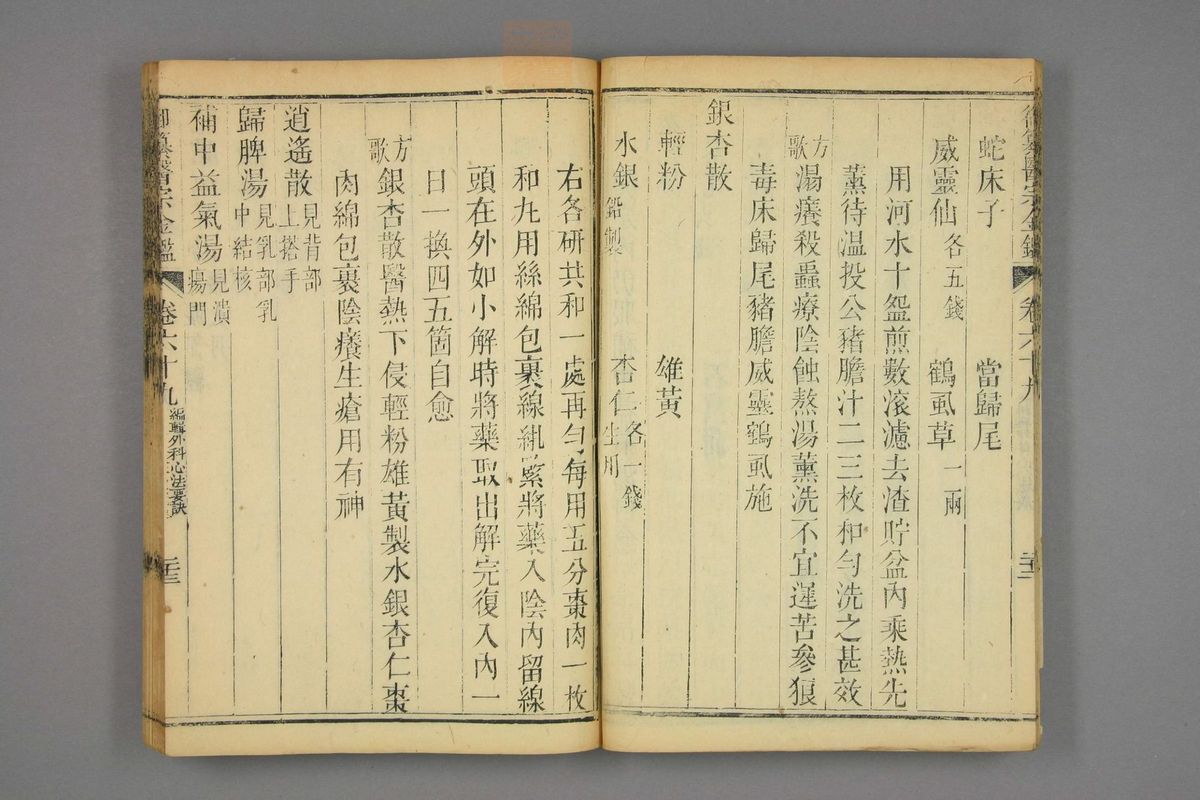 蛇床子 當歸尾
威靈仙各五錢 鶴虱草一兩
用河水十盌煎數滾濾去渣貯盆內乘熱先
薰待溫投公豬膽汁二三枚和勻洗之甚效
方歌
湯癢殺蟲療陰蝕熬湯薰洗不宜遲苦參狼
毒床歸尾豬膽威靈鶴虱施
銀杏散
輕粉 雄黃
水銀鉛製 杏仁各一錢生用
右各研共和一處再勻每用五分棗肉一枚
和丸用絲綿包裹線紮緊將藥入陰內留線
頭在外如小解時將藥取出解完復入內一
日一換四五箇自愈
方歌
銀杏散醫熱下侵輕粉雄黃製水銀杏仁棗
肉綿包裹陰癢生瘡用有神
逍遙散見背部上搭手
歸脾湯見乳部乳中結核
補中益氣湯見潰瘍門
御纂醫宗金鑑 卷六十九 編輯外科心法要訣